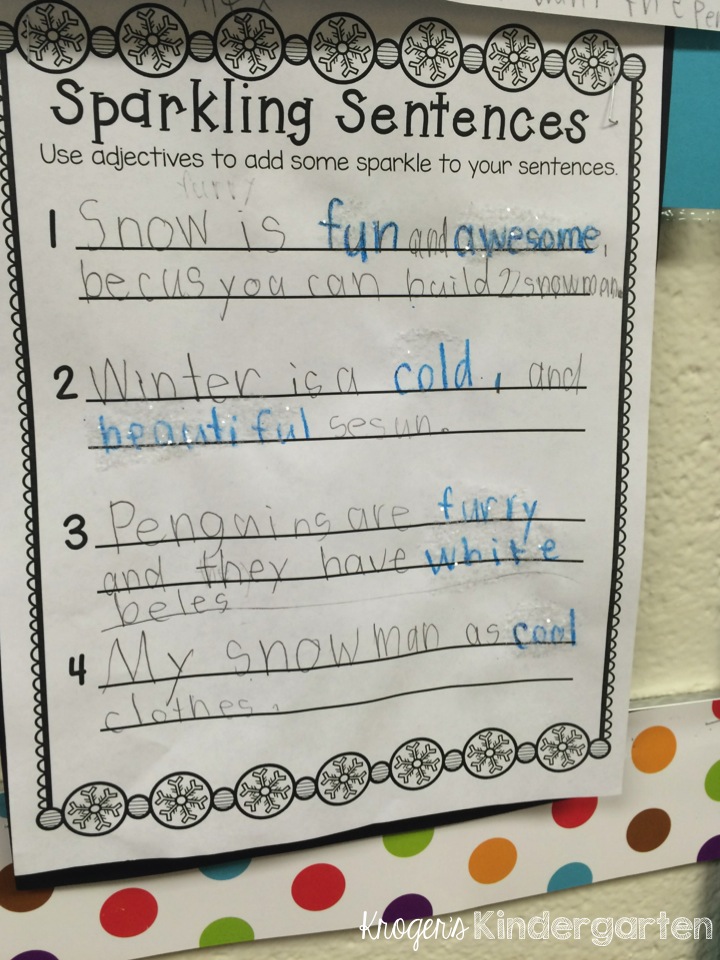 Sparkling Sentences
Use adjectives to add some sparkle to your sentences.
furry
1 Snow is fun and awesome,
becus you can build a snowman.
2 Winter is a cold, and
beautiful sesun.
3 Penguins are furry
and they have white
beles
4 My snowman as cool
clothes.
Kroger's Kindergarten